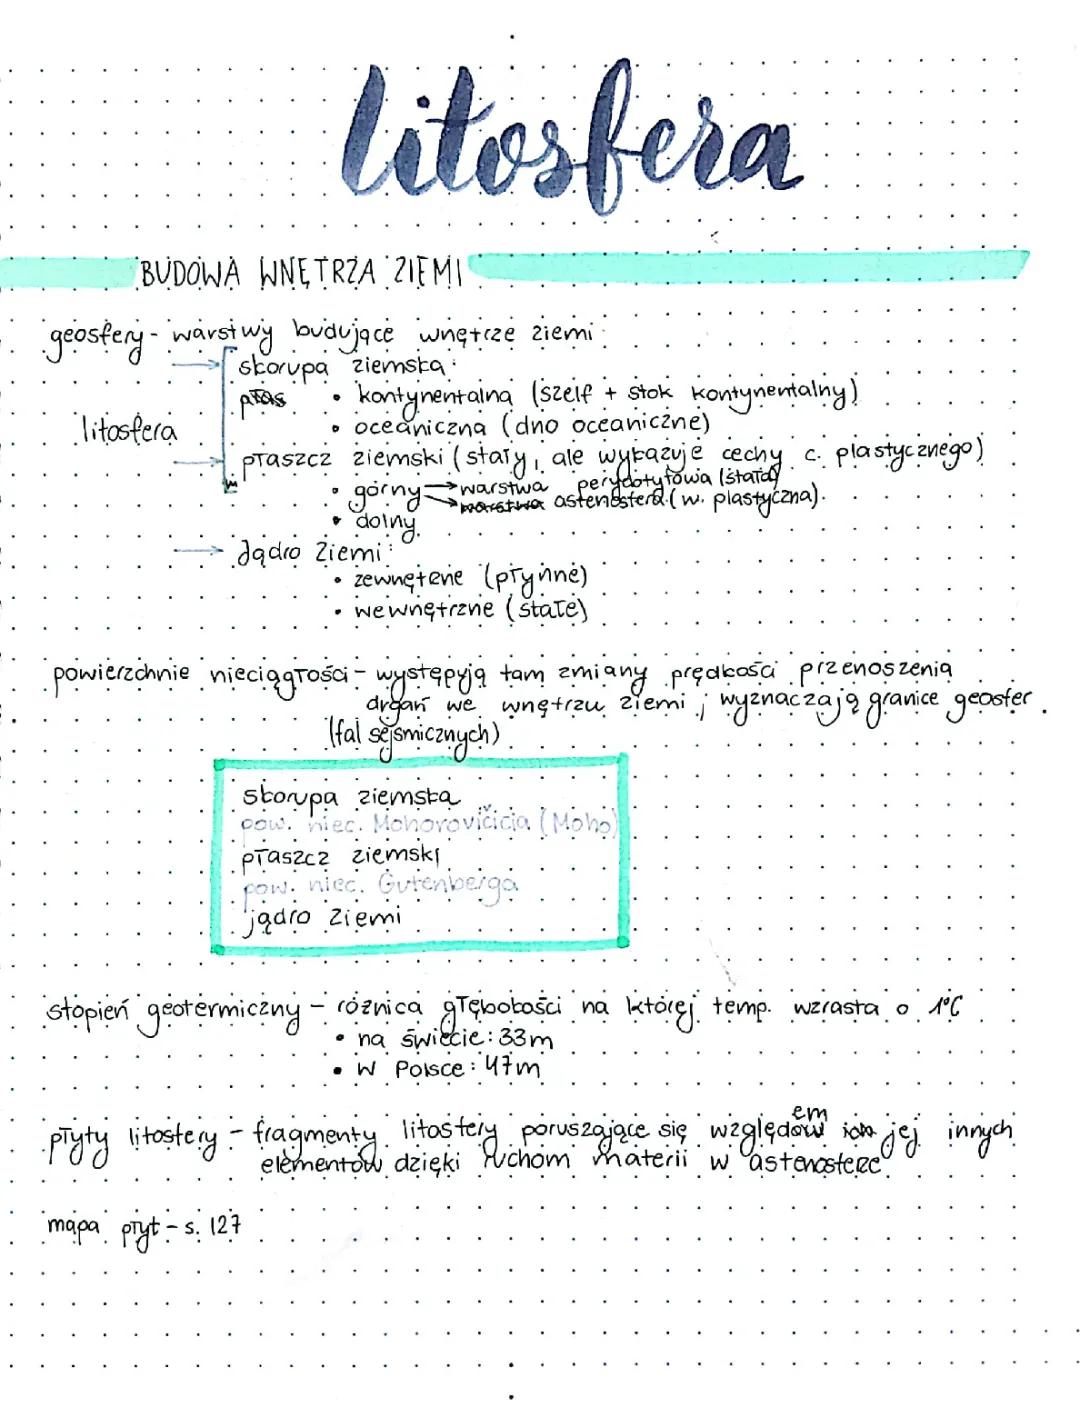 litosfera
BUDOWA WNĘTRZA ZIEMI
geosfery - warstwy budujące wnętrze ziemi:
skorupa ziemska:
płas • kontynentalna (szelf + stok kontynentalny)
litosfera • oceaniczna (dno oceaniczne)
płaszcz ziemski (stały, ale wykazuje cechy c. plastycznego)
• górny → warstwa perydotytowa (stała)
→ warstwa astenosfera (w. plastyczna)
• dolny
→ Jądro Ziemi:
• zewnętrzne (płynne)
• wewnętrzne (stałe)
powierzchnie nieciągłości - występują tam zmiany prędkości przenoszenia
drgań we wnętrzu ziemi; wyznaczają granice geosfer.
(fal sejsmicznych)
skorupa ziemska
pow. niec. Mohorovičicia (Moho)
płaszcz ziemski
pow. niec. Gutenberga
jądro Ziemi
stopień geotermiczny - różnica głębokości na której temp. wzrasta o 1°C
• na świecie: 33m
• w Polsce: 47m
em
płyty litosfery - fragmenty litosfery poruszające się względów ich jej innych
elementów dzięki ruchom materii w astenosferze
mapa płyt - s. 127